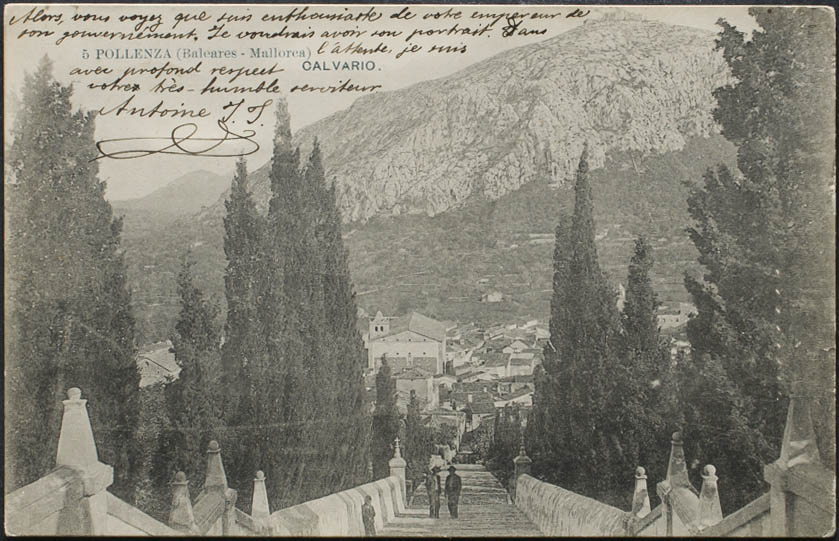 Alors, vous voyez que suis enthousiaste de votre empereur de
son gouvernément. Je voudrais avoir son portrait. Dans
5 POLLENZA (Baleares - Mallorca) l'attente, je suis
avec profond respect CALVARIO.
votre très-humble serviteur
Antoine J. S.